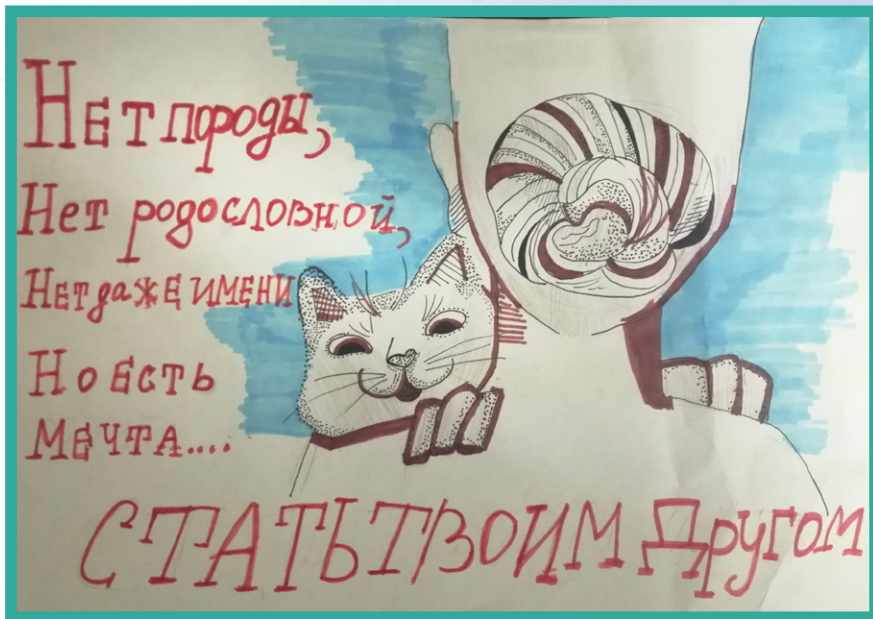 Нет породы,
Нет родословной,
Нет даже имени
Но есть
мечта....
СТАТЬ ТВОИМ Другом